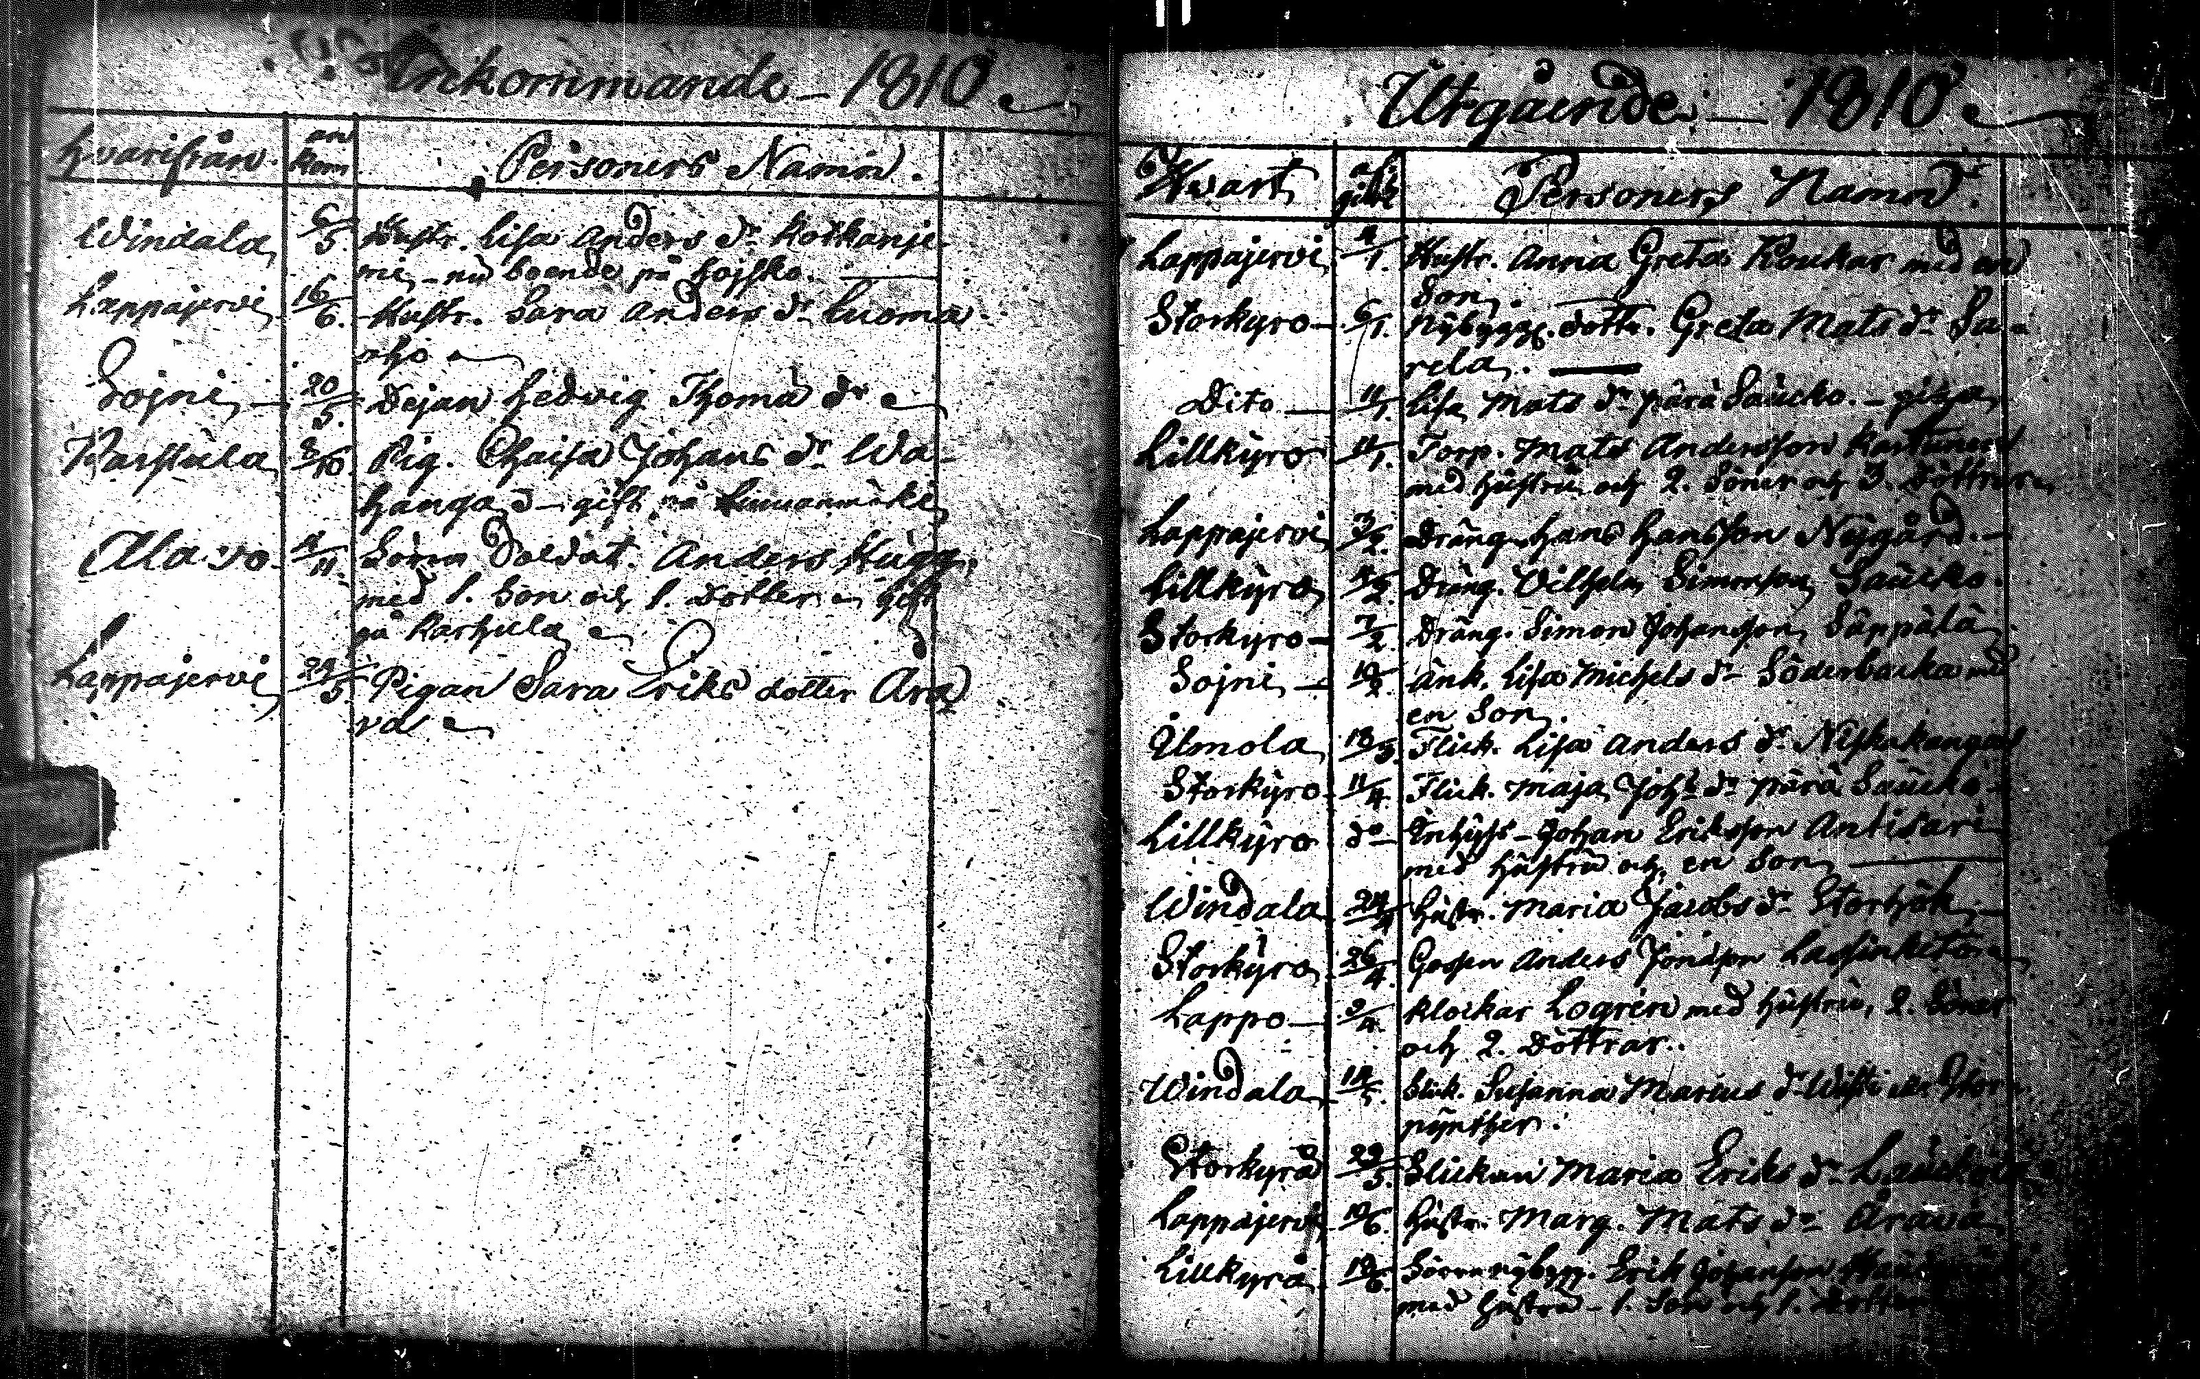 Inkommande – 1810.
Hvarifrån. an kom Personers Namn.
Windala 6/5. Hustr. Lisa Anders dr Kotkanje-
mi, – nu boende på Hojsko.
Lappajervi 16/6. Hustr. Sara Anders dr Luoma-
aho
Sojni 20/5. Dejan Hedvig Thomæ dr
Karstula 8/10 Pig. Chaisa Johans dr Wa-
hanga, d – gift på
Alavo. 4/11. Soldat. Anders Hugg,
med 1. Son och 1. Dotter gift
på Karhula
Lappajervi 29/5. Pigan Sara Eriks dotter Ara
va
Utgående – 1810.
Hvart Personers Namn.
Lappajervi 4/1. Hustr. Anna Greta Koukar med en
Son.
Storkyro 6/1. Nybygg. dottr. Greta Mats dr Sa-
rela.
Dito 11/1. Lisa Mats dr pärä Saucko. –
Lillkyro 11/1. Torp. Mats Andersson
med hustru och 2. Söner och 3. Döttrar
Lappajervi 3/2. Dräng. Hans Hansson Nygård. –
Lillkyro 4/2. Dräng. Vilhelm Simonson Saucko.
Storkyro 7/2. Dräng. Simon Johanson Säppälä.
Sojni 10/2. änk. Lisa Michels dr Söderbacka med
en Son.
Ilmola 18/3. Flick. Lisa Anders dr Niskakangas
Storkyro 11/4. Flick. Maja Joh. dr pärä Saucko
Lillkyro do Inhyss – Johan Eriksson Antisari
med hustru och en Son
Windala 24/4 hustr. Maria Jacobs dr
Storkyro 26/4. Gossen Anders
Lappo 2/4. Klockar Logren med hustru, 2. Söner
och 2. Döttrar.
Windala 14/5. Flick. Susanna Marius dr
Storkyrå 29/5. Flickan Maria Eriks dr
Lappajervi 10/6. hustr. Marg. Mats dr Arava
Lillkyrå nybygg. Erik Johanson
med hustru – 1. Son och 1. dotter